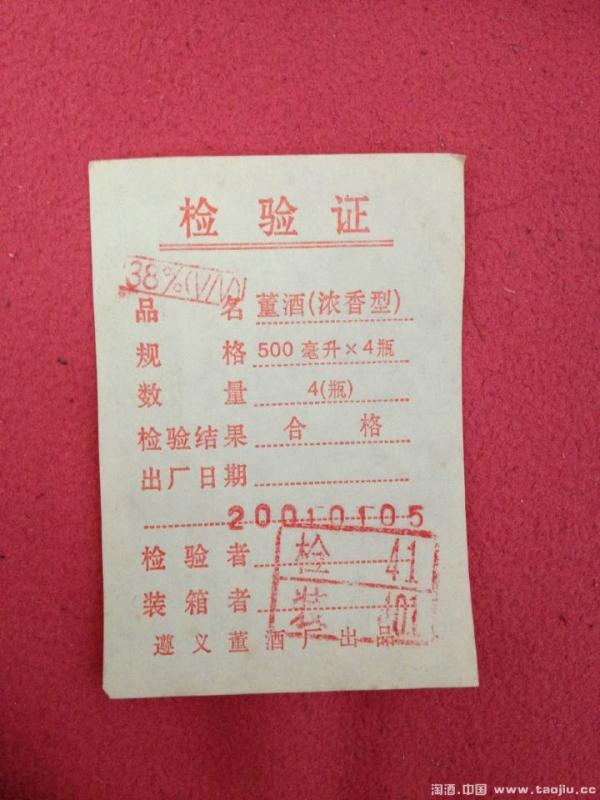 检验证
38%(V/V)
品名 董酒(浓香型)
规格 500毫升×4瓶
数量 4(瓶)
检验结果 合格
出厂日期
20010105
检验者 检 41
装箱者 装 101
遵义董酒厂出品
淘酒.中国 www.taojiu.cc